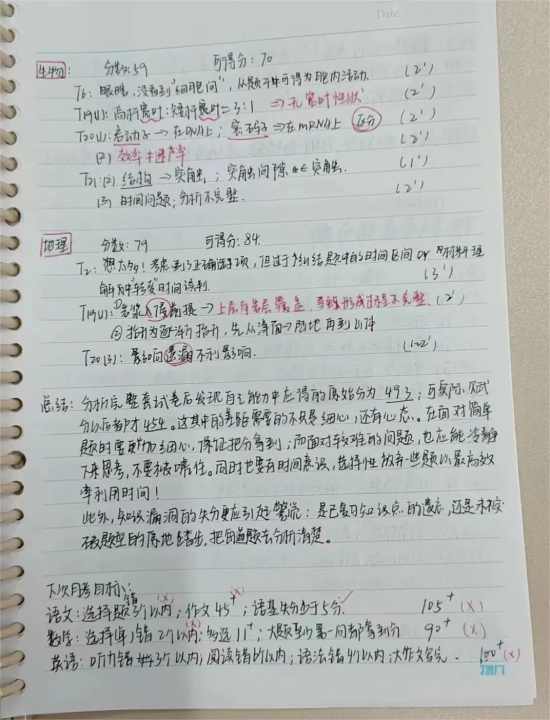 Date
生物: 分数: 59 可得分: 70
T6: 眼瞎, 没看到"细胞间", 从题干中可得为胞内活动. (2')
T19(4): 高杆赛时:矮杆赛时=3:1 ⇒ 无赛时性状 (2')
T20(1): 启动子→在DNA上; 密码子→在mRNA上 区分 (2')
(2) 效率+速产率 (2')
T21: (2) 结构→突触; 突触间隙 突触. (1')
(3) 时间问题; 分析不完整. (2')
地理 分数: 79 可得分: 84.
T2: 想太多! 考虑到了正确选项, 但过于纠结题中的时间区间 or
解或"较多"时间误判. (3')
T19(1): ①岩浆入侵前提→上层有岩层覆盖, 导致形成过程不完整. (2')
②抬升为逐渐抬升, 先从海面→陆地再到山体
T20(3): 影响遗漏不利影响. (1~2')
总结: 分析完整套试卷后发现自己能力中应得的原始分为493; 可实际赋
分以后都才454. 这其中的差距需要的不只是细心, 还有心态. 在面对简单
题时需要更加细心, 保证把分拿到; 而面对较难的问题, 也应能冷静
下来思考, 不要被唬住. 同时也要有时间意识, 选择性放弃一些题以最高效
率利用时间!
此外, 知识漏洞的失分更应引起警觉: 是已复习知识点的遗忘, 还是未接
触题型的陌生踏出. 把每道题去分析清楚.
下次月考目标:
语文: 选择题错3个以内; 作文45⁺; 诸基失分少于5分. 105⁺ (×)
数学: 选择单1错2个以内; 多选11⁺; 大题至少第一问都拿到分 90⁺ (×)
英语: 听力错3个以内; 阅读错个以内; 语法错4个以内; 大作文写完. 100⁺ (×)